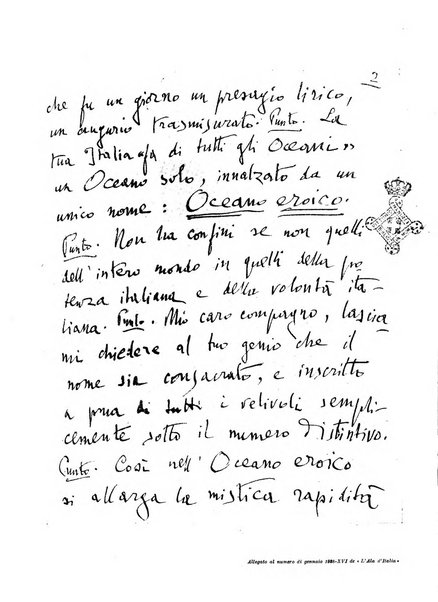 2
che fu un giorno un presagio lirico,
un augurio trasmisurato. Punto. La
tua Italia fa di tutti gli Oceani »
un Oceano solo, innalzato da un
unico nome: Oceano eroico.
Punto. Non ha confini se non quelli
dell'intero mondo in quelli della po-
tenza italiana e della volontà ita-
liana. Punto. Mio caro compagno, lascia
mi chiedere al tuo genio che il
nome sia consacrato, e inscritto
a prua di tutti i velivoli sempli-
cemente sotto il numero distintivo.
Punto. Così nell'Oceano eroico
si allarga la mistica rapidità
Allegato al numero di gennaio 1938-XVI de « L'Ala d'Italia »